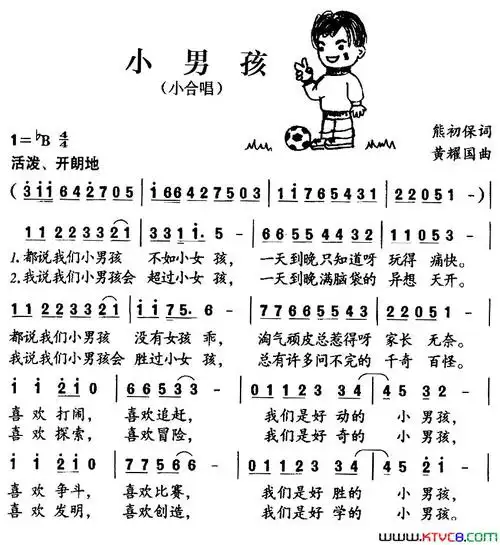 小男孩
（小合唱）
1=♭B 4/4
熊初保词
活泼、开朗地
黄耀国曲
(3̇i̇i̇642705 | i̇i̇66427705 | i̇i̇765431 | 22051 - )|
11223321 | 331i̇.5 - | 66554432 | 22051 - |
1.都说我们小男孩 不如小女孩， 一天到晚只知道呀 玩得 痛快。
2.我说我们小男孩会 超过小女孩， 一天到晚满脑袋的 异想 天开。
11223321 | i̇i̇75.6 - | 77665543 | 22051 - |
都说我们小男孩 没有女孩 乖， 淘气顽皮总惹得呀 家长 无奈。
我说我们小男孩会 胜过小女 孩， 总有许多问不完的 千奇 百怪。
i̇ i̇ 2̇i̇0 | 66533 | 01122334 | 45 32 - |
喜欢 打闹， 喜欢追赶， 我们是好 动的 小 男孩，
喜欢 探索， 喜欢冒险， 我们是好 奇的 小 男孩，
i̇ i̇ 2̇i̇0 | 77566 | 01122334 | 45 2̇i̇ - |
喜欢 争斗， 喜欢比赛， 我们是好 胜的 小 男孩，
喜欢 发明， 喜欢创造， 我们是好 学的 小 男孩。
www.KTVC8.com